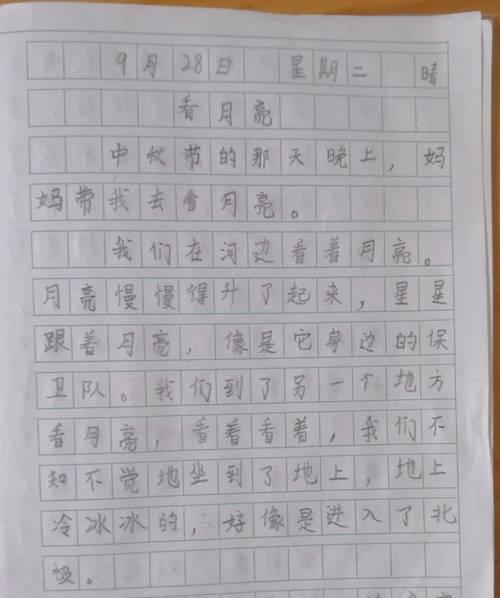 9月28日 星期二 晴
看月亮
中秋节的那天晚上，妈
妈带我去看月亮。
我们在河边看着月亮。
月亮慢慢得升了起来，星星
跟着月亮，像是它身边的保
卫队。我们到了另一个地方
看月亮，看着看着，我们不
知不觉地坐到了地上，地上
冷冰冰的，好像是进入了北
极。